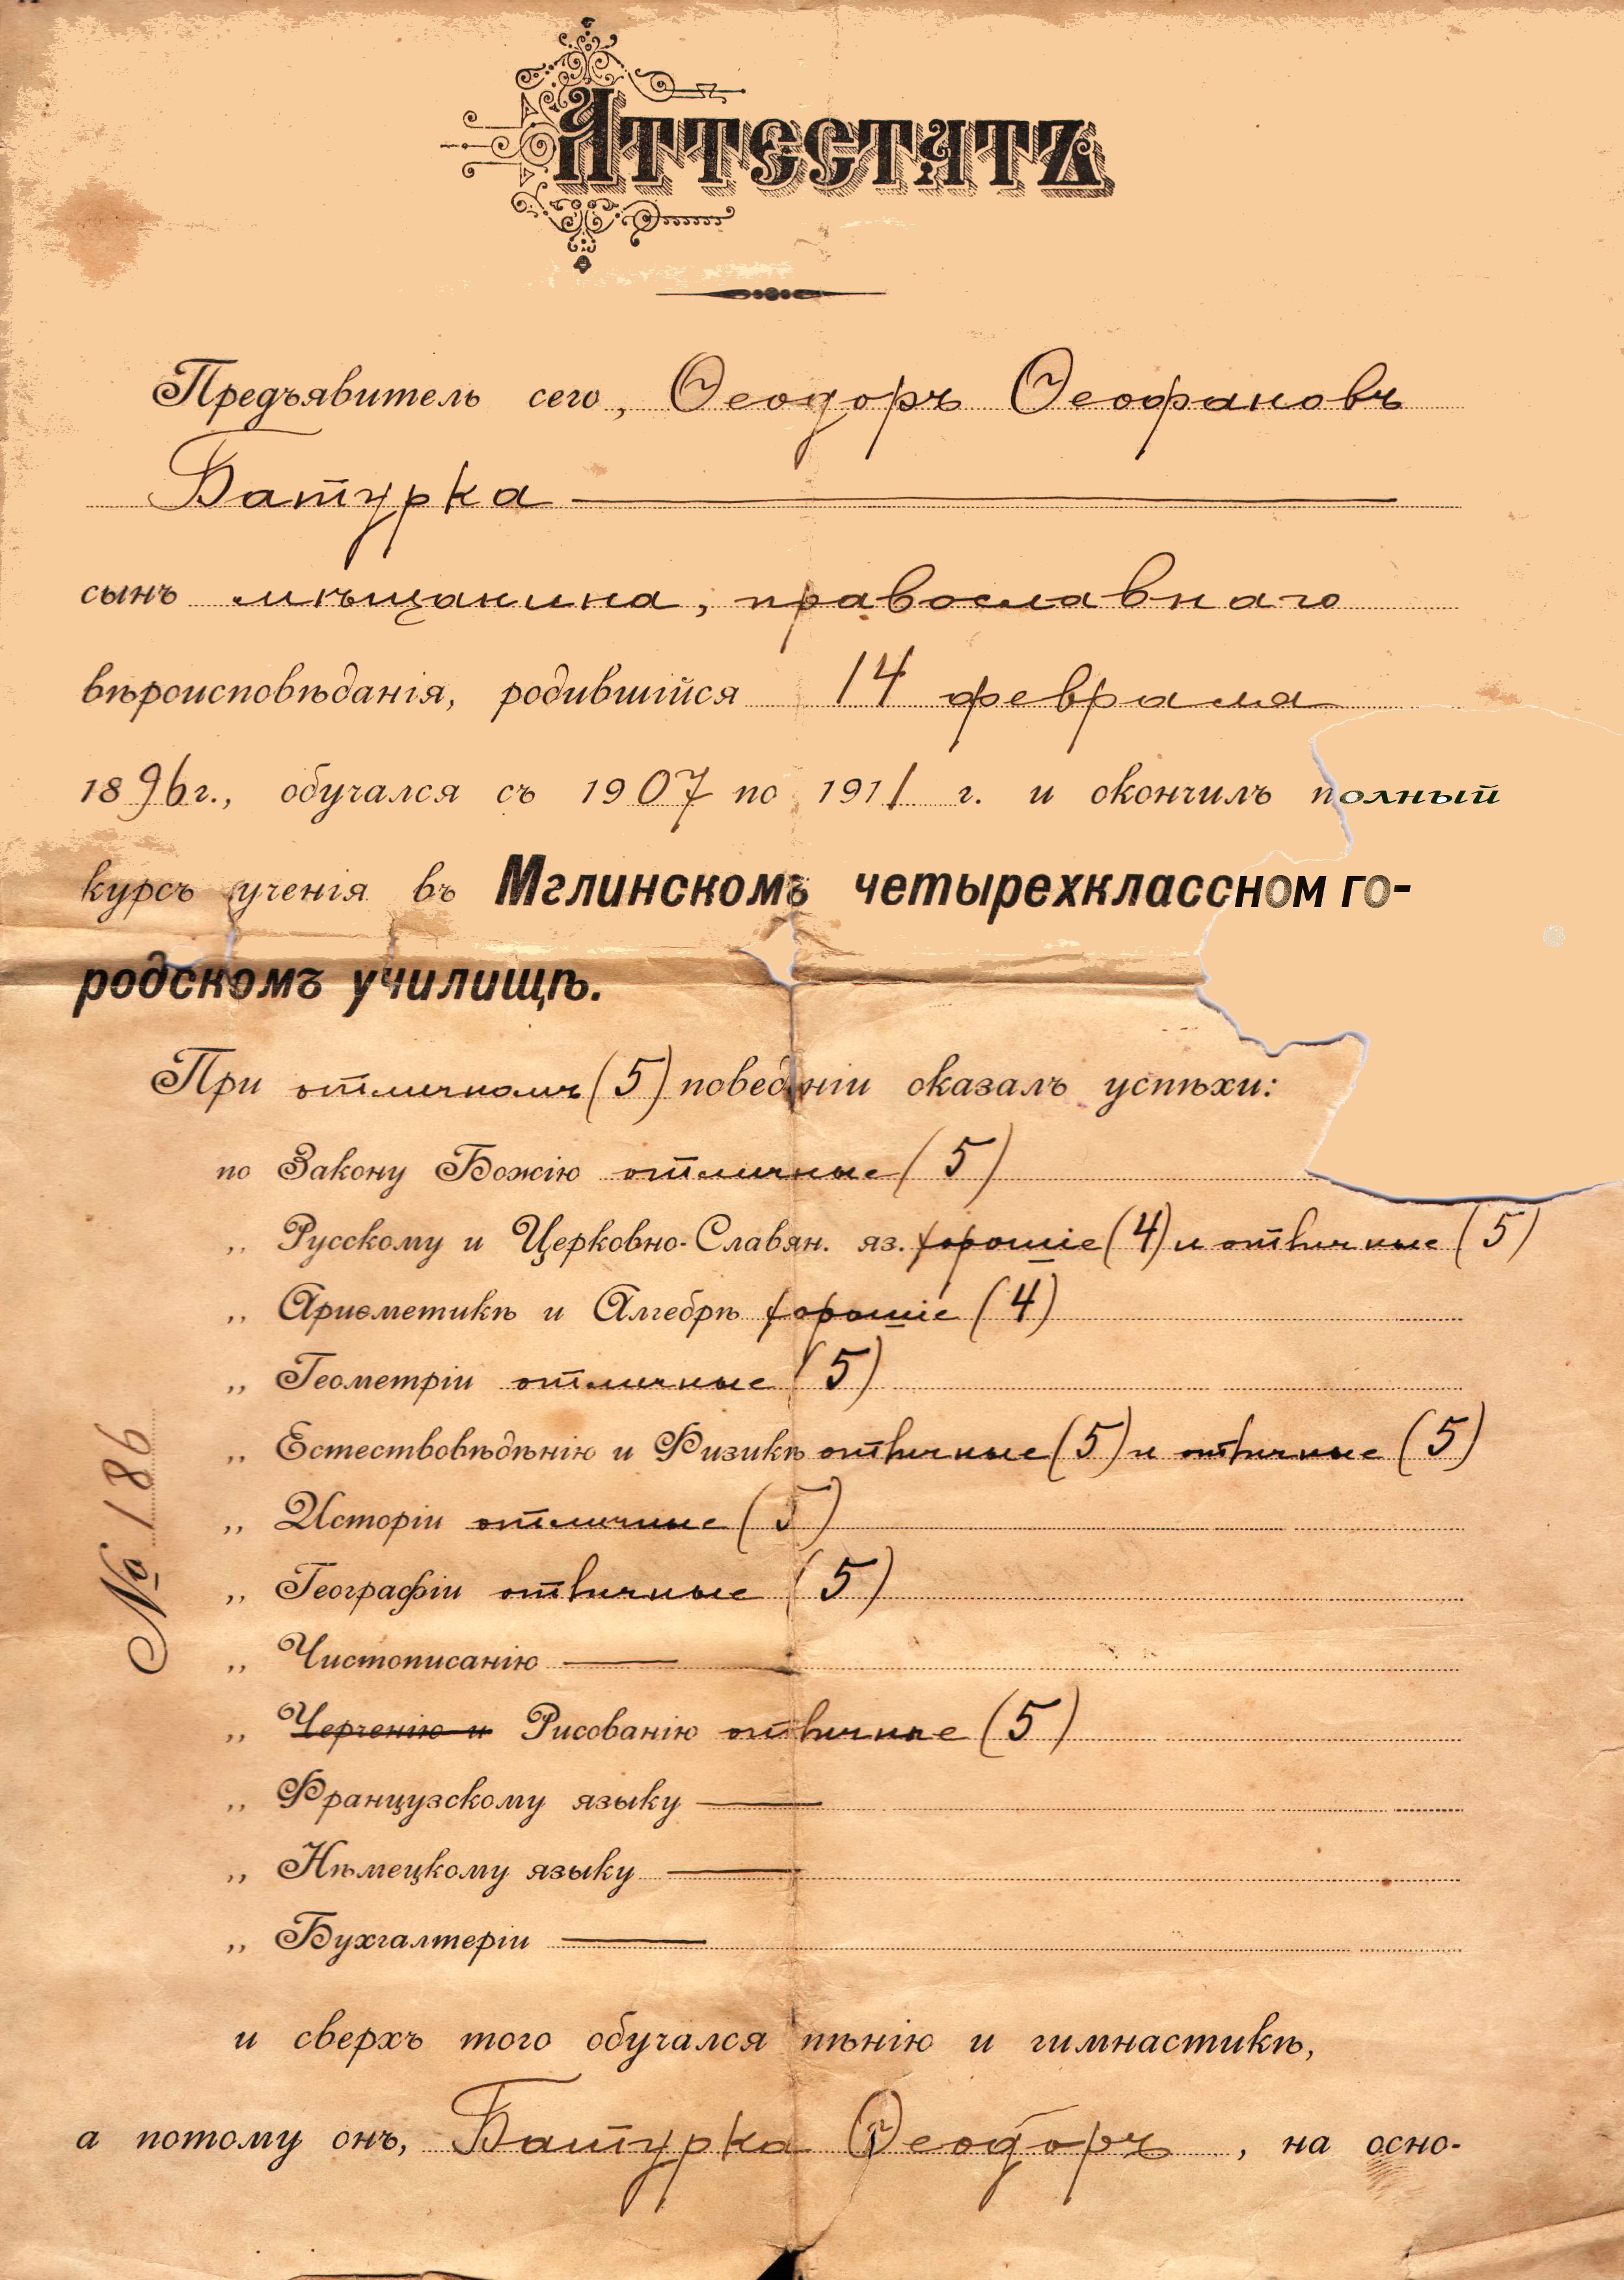 Аттестатъ
Предъявитель сего, Ѳеодоръ Ѳеофановъ
Батурка
сынъ мѣщанина, православнаго
вѣроисповѣданія, родившійся 14 февраля
1896 г., обучался съ 1907 по 1911 г. и окончилъ полный
курсъ ученія въ Мглинскомъ четырехклассном го-
родскомъ училищѣ.
При отличномъ (5) поведеніи оказалъ успѣхи:
по Закону Божію отличные (5)
„ Русскому и Церковно-Славян. яз. хорошіе (4) и отличные (5)
„ Ариѳметикѣ и Алгебрѣ хорошіе (4)
„ Геометріи отличные (5)
„ Естествовѣдѣнію и Физикѣ отличные (5) и отличные (5)
„ Исторіи отличные (5)
„ Географіи отличные (5)
„ Чистописанію
„ Черченію и Рисованію отличные (5)
„ Французскому языку
„ Нѣмецкому языку
„ Бухгалтеріи
№ 186
и сверхъ того обучался пѣнію и гимнастикѣ,
а потому онъ, Батурка Ѳеодоръ, на осно-